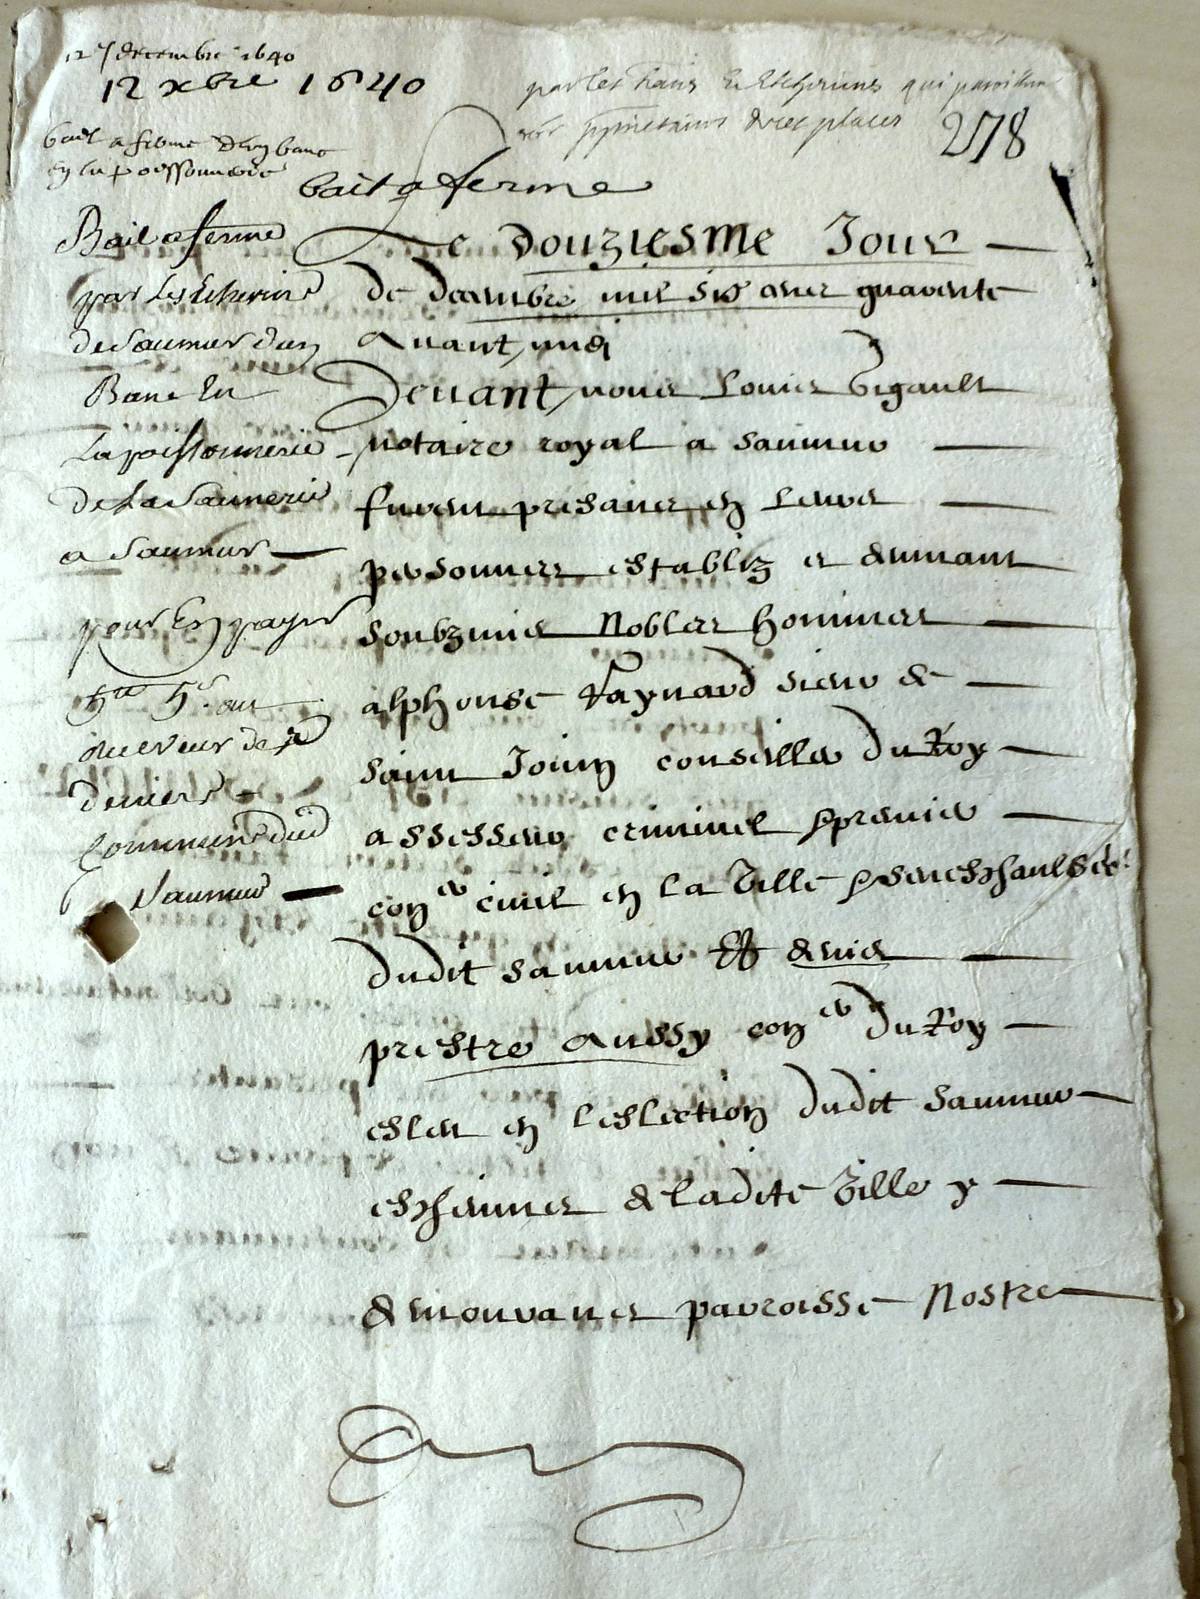 12 decembre 1640
12 xbre 1640
par les maire & Eschevins qui
desd places
278
bail a ferme d'un banc
en la poissonnerie
bail a ferme
Bail a ferme
par Les Echevins
de Saumur d'un
Banc En
La poissonnerie
de La Saunerie
a Saumur
pour En payer
5tt 5s au
receveur de
deniers
Communs dud
Saumur
Le douziesme Jour
de decembre mil six cens quarente
Avant midi
Devant nous Louis Bigault
notaire royal a saumur
furent presens en leurs
personnes establiz et deument
soubzmis Nobles hommes
alphonse Raynard sieur de
saint Jouin conseiller du Roy
assesseur criminel & premier
coner civil en la Ville & seneschaulsée
dudit saumur Et denis
prestre aussy coner du Roy
esleu en leslection dudit saumur
eschevins de ladite Ville y
demourans parroisse Nostre